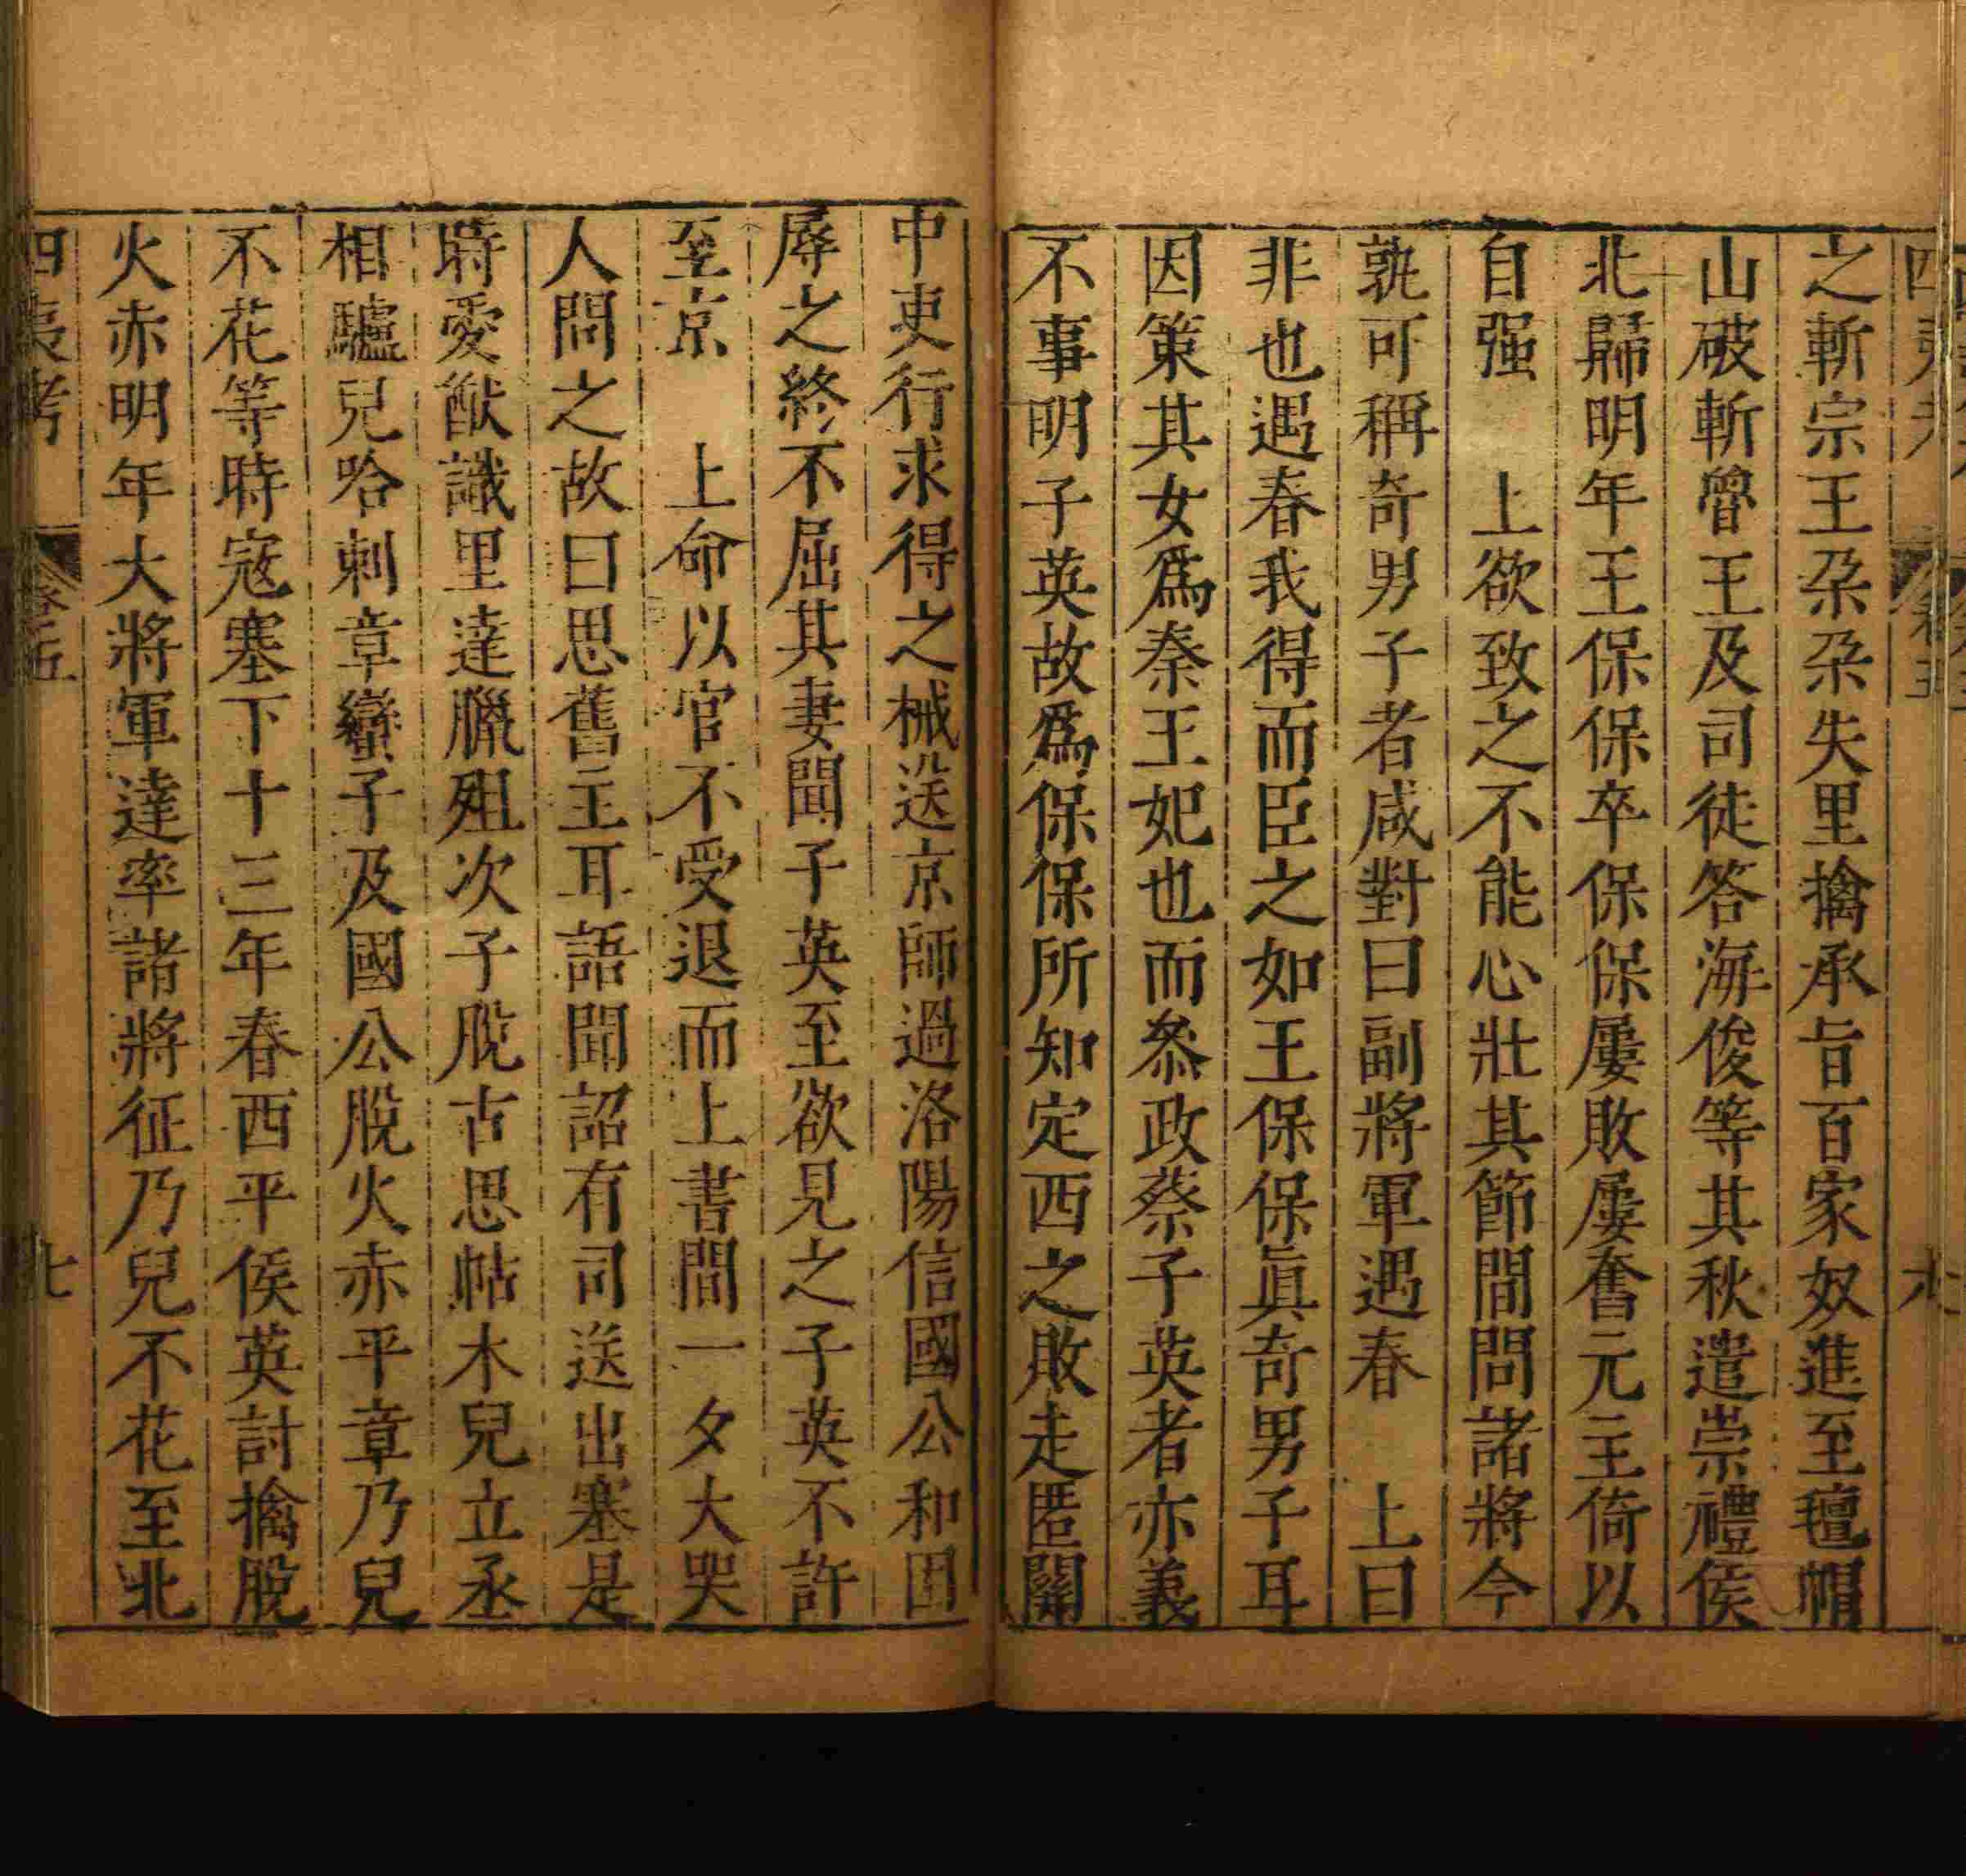 四夷考 卷五 六
之斬宗王朶朶失里擒承旨百家奴進至氊帽
山破斬魯王及司徒答海俊等其秋遣崇禮侯
北歸明年王保保卒保保屢敗屢奮元主倚以
自强 上欲致之不能心壯其節間問諸將今
孰可稱奇男子者咸對曰副將軍遇春 上曰
非也遇春我得而臣之如王保保眞奇男子耳
因策其女爲秦王妃也而叅政蔡子英者亦義
不事明子英故爲保保所知定西之敗走匿關
中吏行求得之械送京師過洛陽信國公和困
辱之終不屈其妻聞子英至欲見之子英不許
至京 上命以官不受退而上書間一夕大哭
人問之故曰思舊主耳語聞詔有司送出塞是
時愛猷識里達臘殂次子脫古思帖木兒立丞
相驢兒哈剌章蠻子及國公脫火赤平章乃兒
不花等時寇塞下十三年春西平侯英討擒脫
火赤明年大將軍達率諸將征乃兒不花至北
四夷考 卷五 七